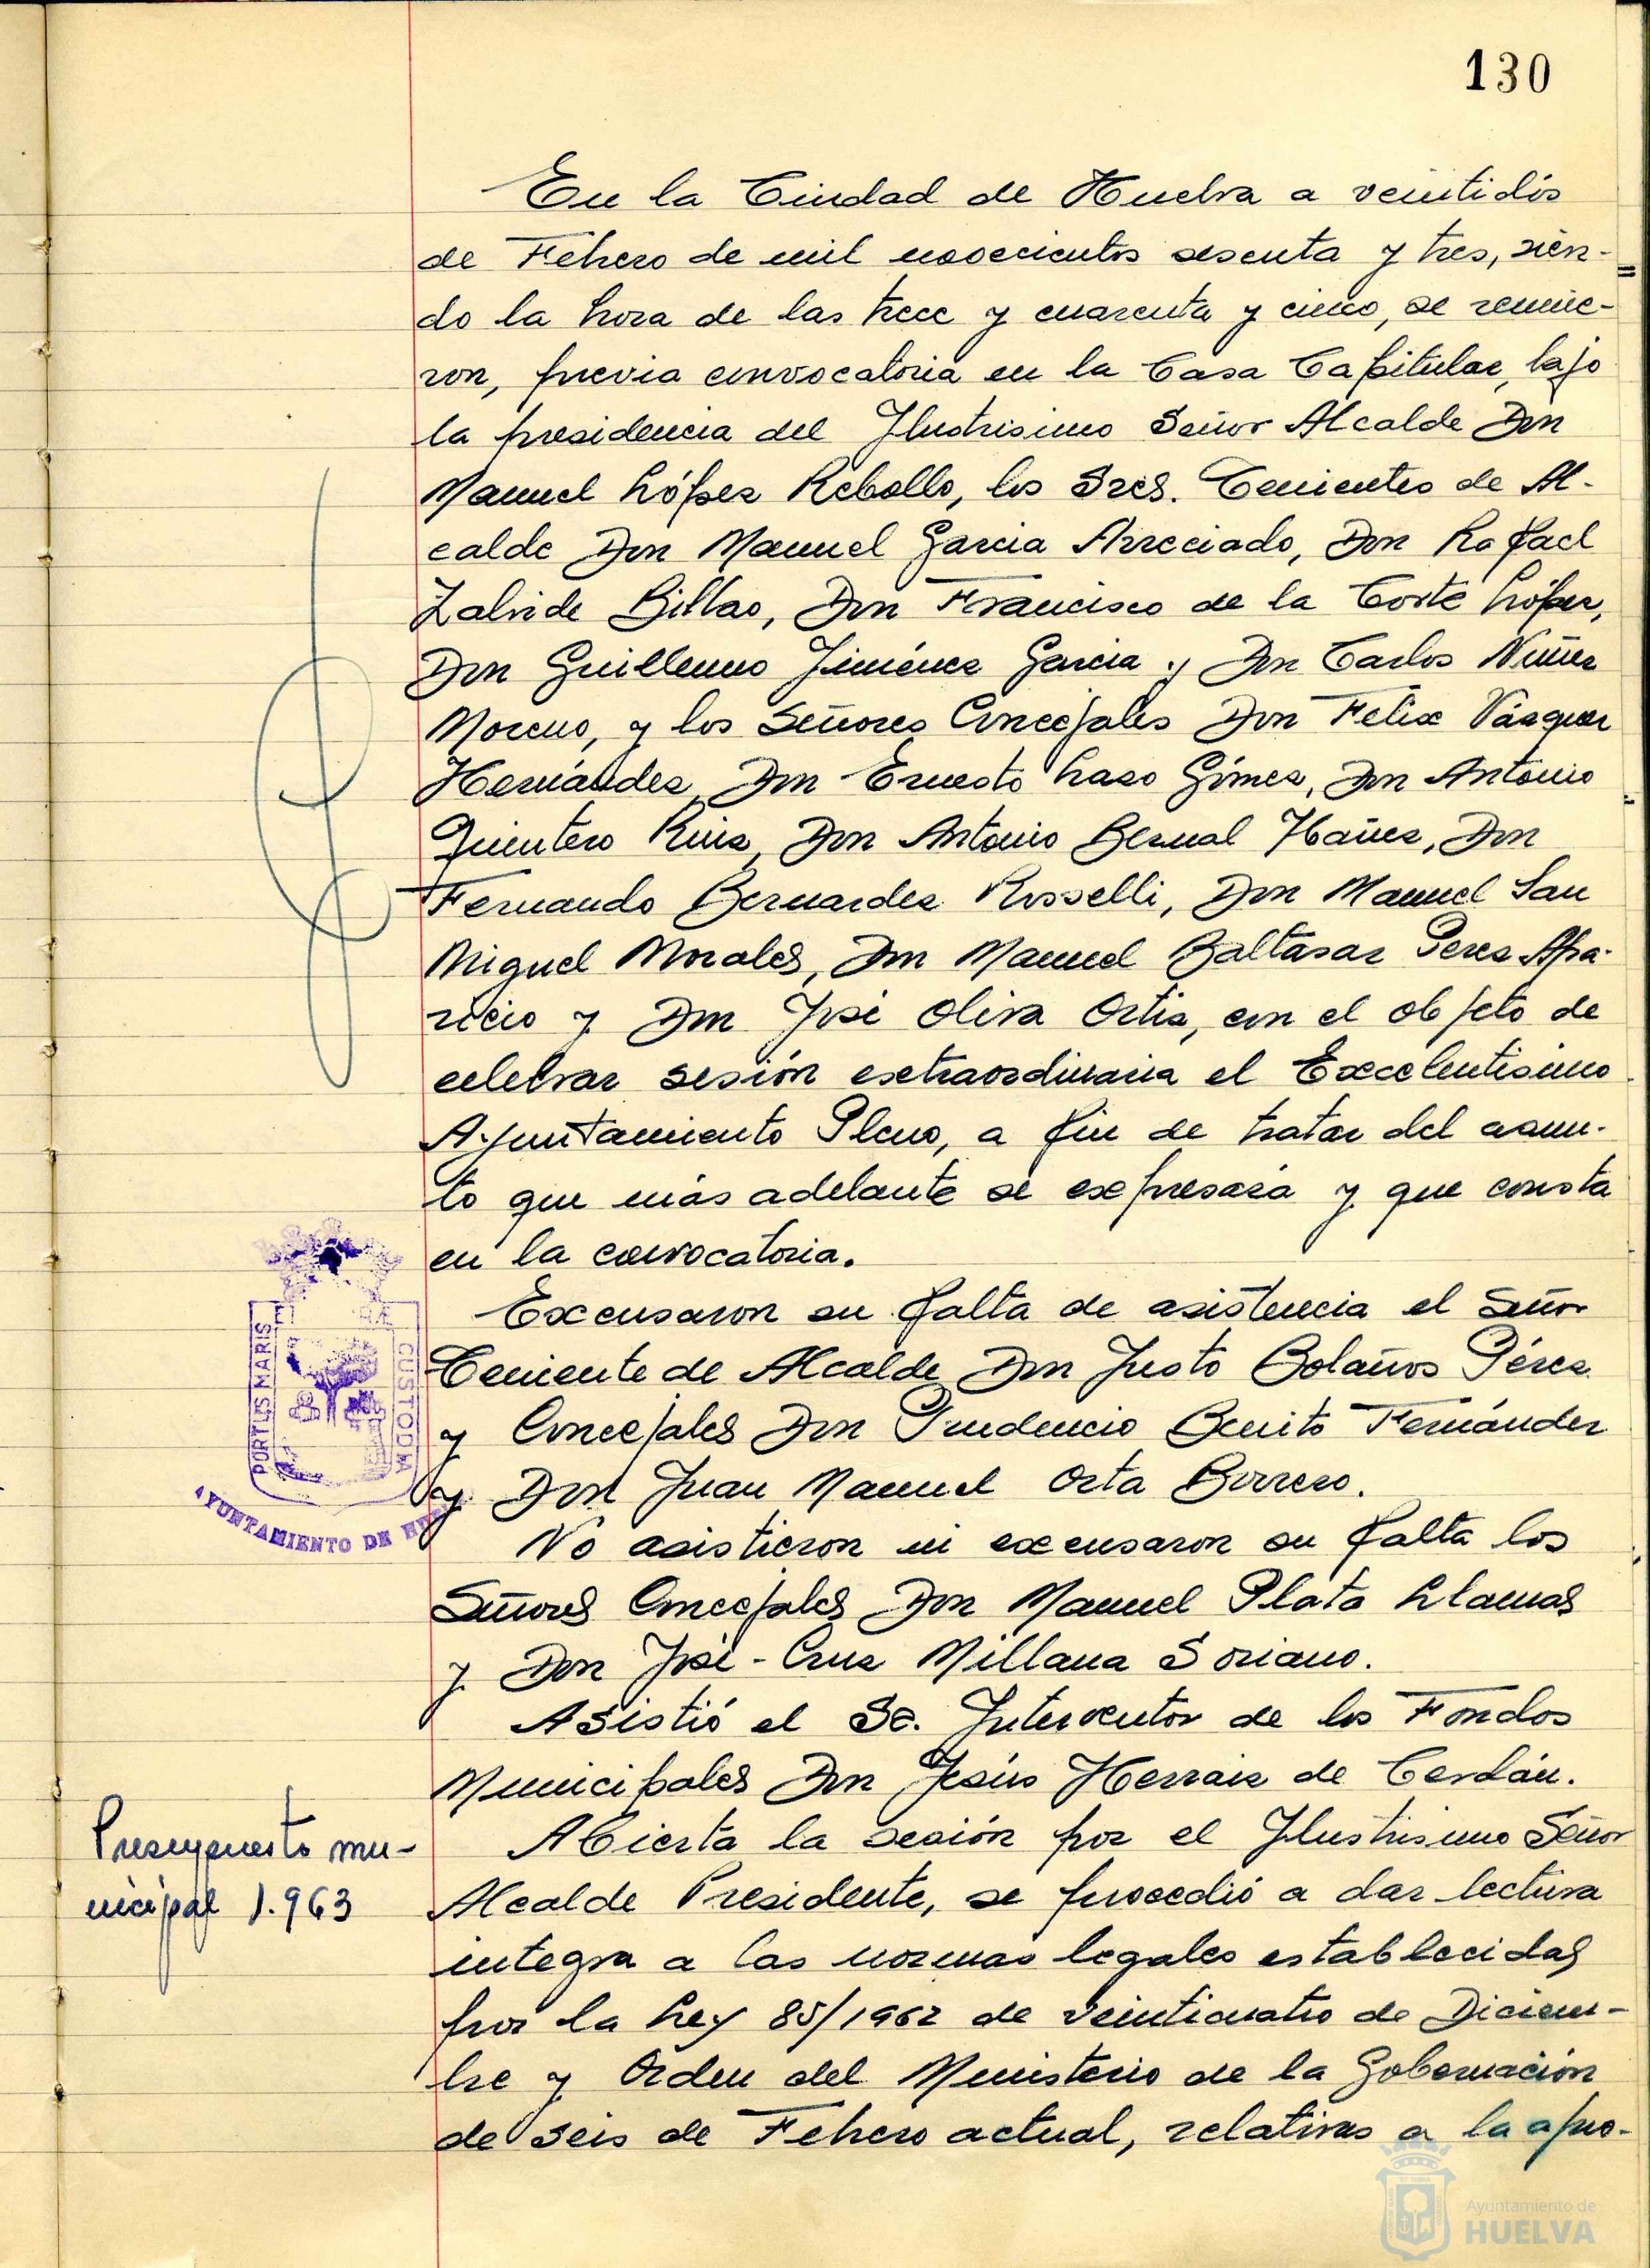 130
En la Ciudad de Huelva a veintidós
de Febrero de mil novecientos sesenta y tres, sien-
do la hora de las trece y cuarenta y cinco, se reunie-
ron, previa convocatoria en la Casa Capitular, bajo
la presidencia del Ilustrisimo Señor Alcalde Don
Manuel López Rebollo, los Sres. Tenientes de Al-
calde Don Manuel Garcia Arreciado, Don Rafael
Zalvide Bilbao, Don Francisco de la Corte López,
Don Guillermo Jiménez Garcia y Don Carlos Núñez
Moreno, y los Señores Concejales Don Felix Vázquez
Hernández, Don Ernesto Lazo Gómez, Don Antonio
Quintero Ruiz, Don Antonio Bernal Ybañez, Don
Fernando Bernardez Rosselli, Don Manuel San
Miguel Morales, Don Manuel Baltasar Perez Apa-
ricio y Don José Oliva Ortiz, con el objeto de
celebrar sesión extraordinaria el Excelentisimo
Ayuntamiento Pleno, a fin de tratar del asun-
to que más adelante se expresará y que consta
en la convocatoria.
Excusaron su falta de asistencia el Señor
Teniente de Alcalde Don Justo Bolaños Pérez
y Concejales Don Prudencio Benito Fernández
y Don Juan Manuel Orta Borrero.
No asistieron ni excusaron su falta los
Señores Concejales Don Manuel Plata Llamas
y Don José-Cruz Millana Soriano.
Asistió el Sr. Interventor de los Fondos
Municipales Don Jesús Herraiz de Cerdán.
Abierta la sesión por el Ilustrisimo Señor
Alcalde Presidente, se procedió a dar lectura
integra a las normas legales establecidas
por la Ley 85/1962 de veinticuatro de Diciem-
bre y Orden del Ministerio de la Gobernación
de seis de Febrero actual, relativas a la apro-
PORTUS MARIS
ET
CUSTODIA
AYUNTAMIENTO DE
Presupuesto mu-
nicipal 1.963
Ayuntamiento de
HUELVA